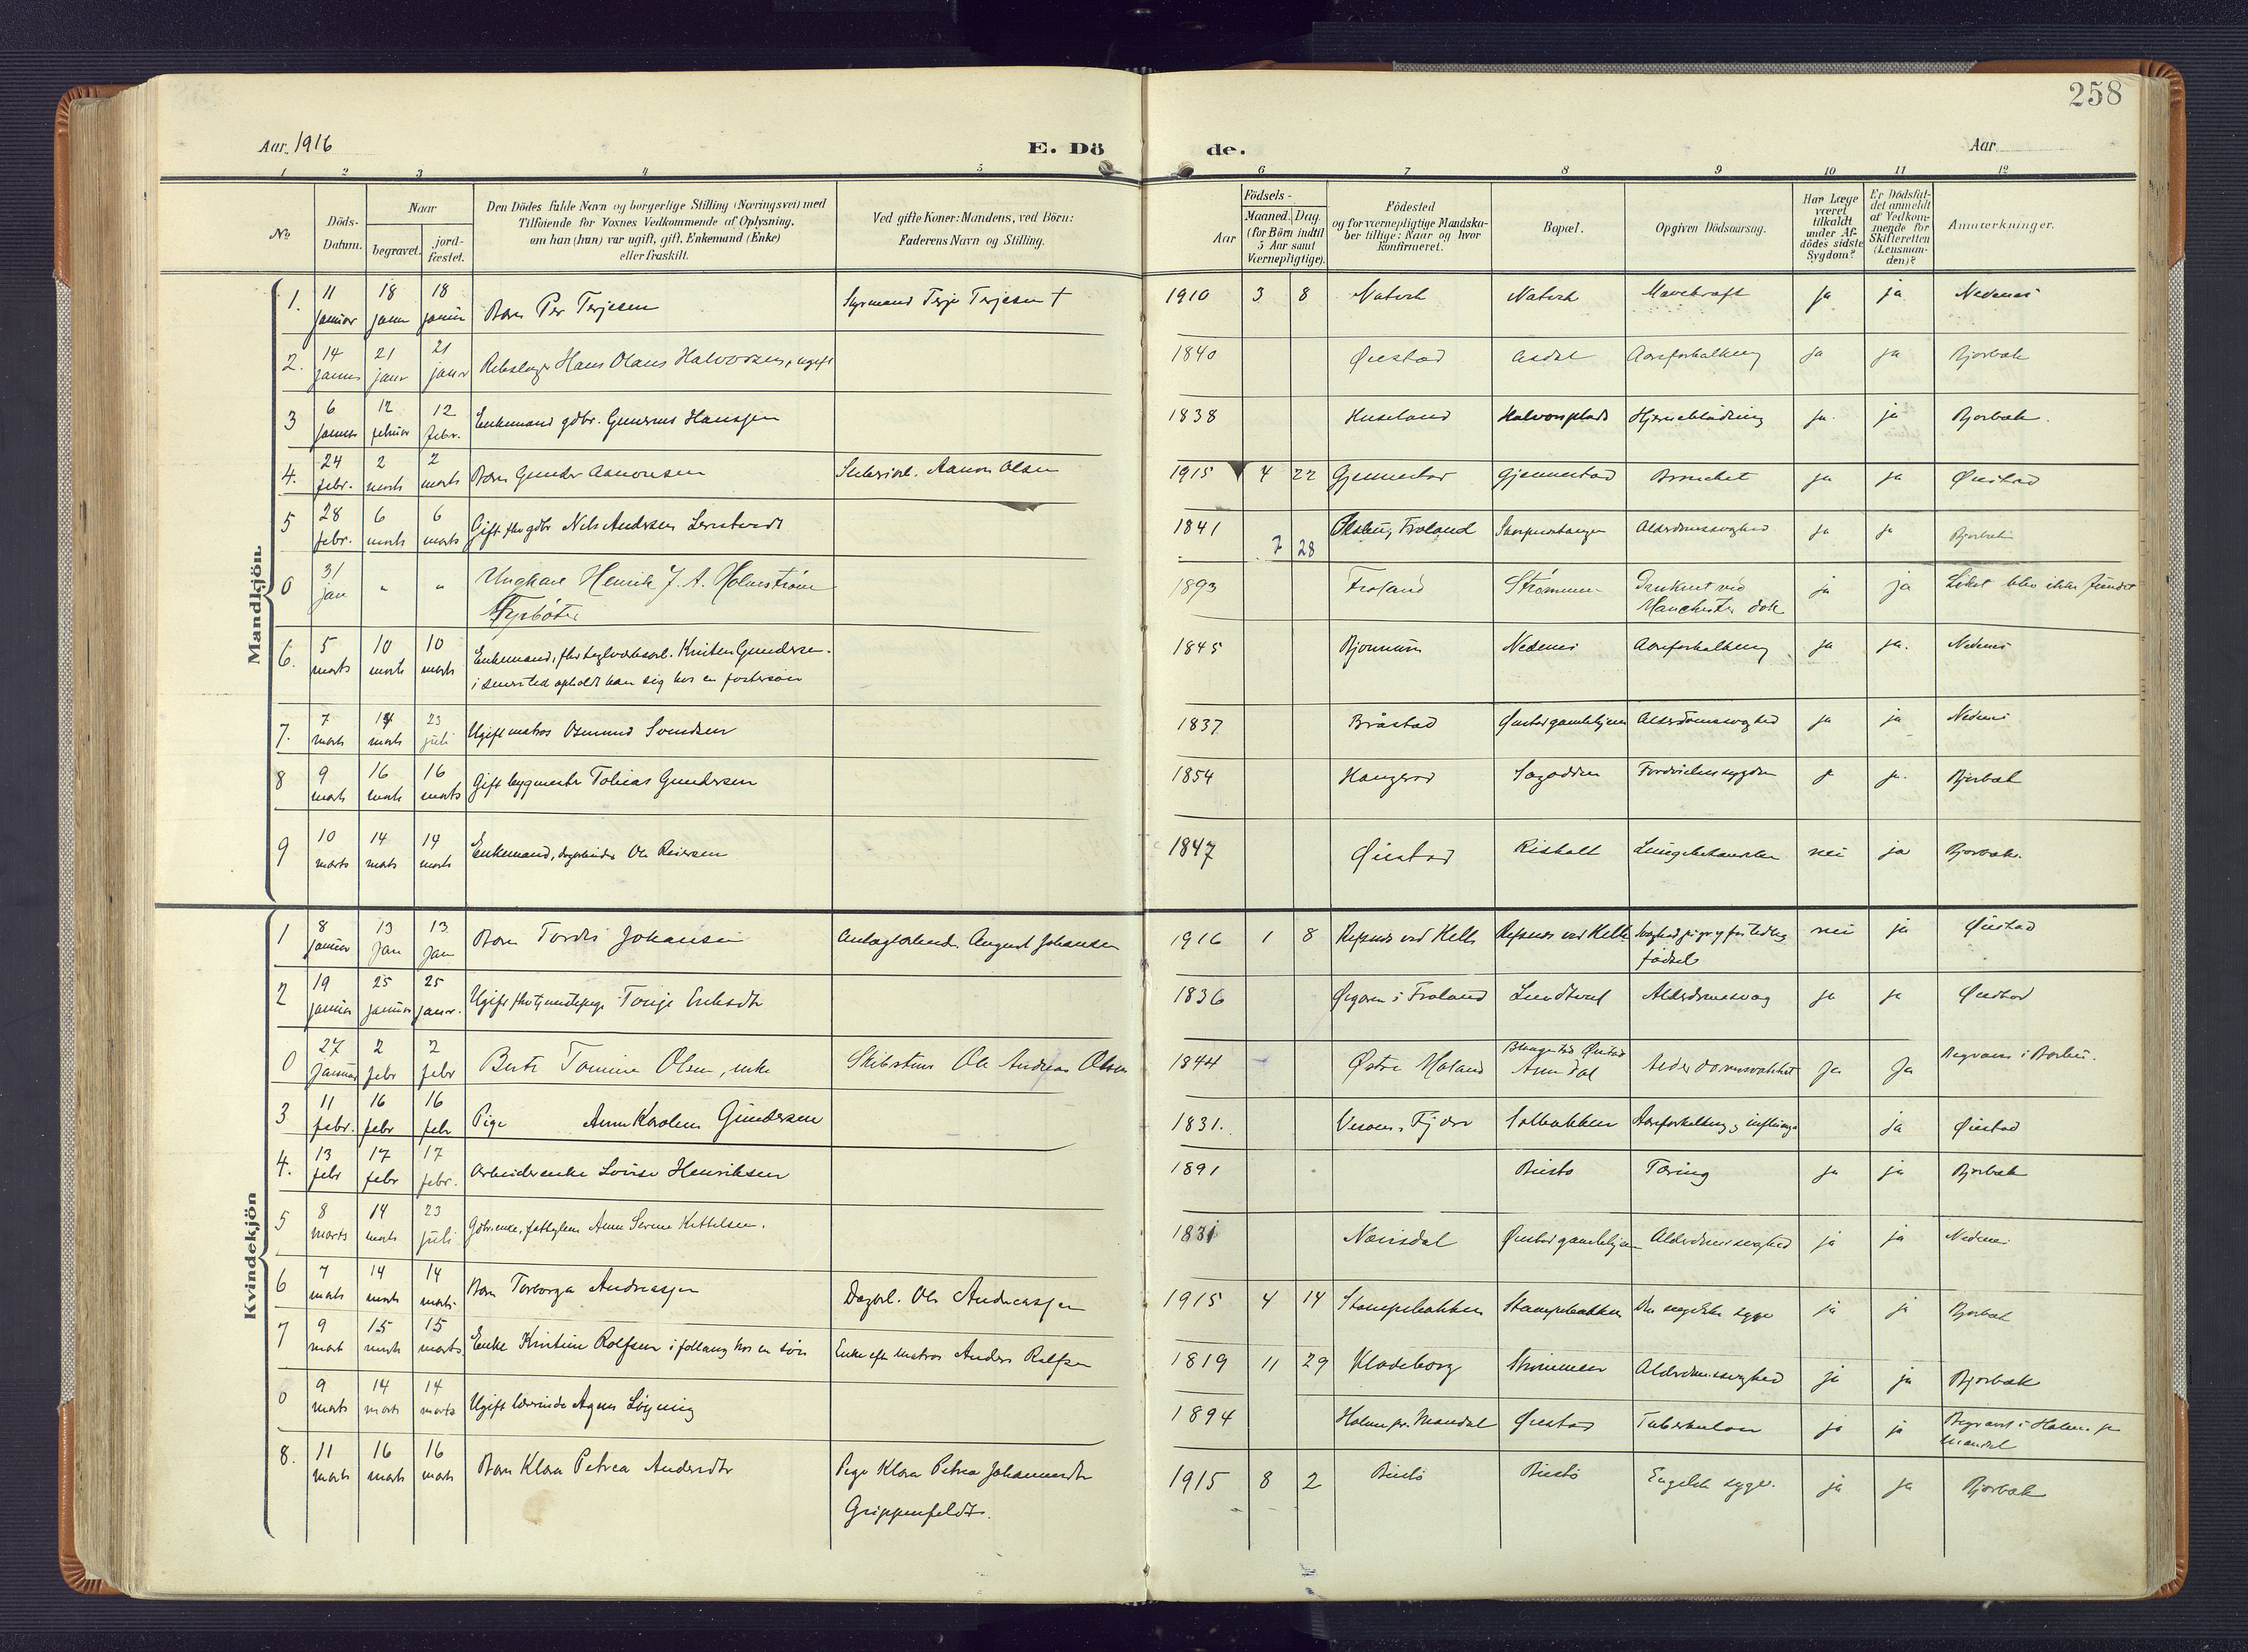 258
Aar 1916
E. Dö
de.
Aar
1 2 3 4 5 6 7 8 9 10 11 12
No
Döds-Datum.
Naar
begravet.
jord-fæstet.
Den Dödes fulde Navn og borgerlige Stilling (Næringsvei) med
Tilföiende for Voxnes Vedkommende af Oplysning,
om han (hun) var ugift, gift, Enkemand (Enke)
eller fraskilt.
Ved gifte Koner: Mandens, ved Börn:
Faderens Navn og Stilling.
Födsels-
Aar
Maaned. Dag.
(for Börn indtil
5 Aar samt
Værnepligtige).
Födested
og for værnepligtige Mandska-
ber tillige: Naar og hvor
konfirmeret.
Bopæl.
Opgiven Dödsaarsag.
Har Læge
været
tilkaldt
under Af-
dödes sidste
Sygdom?
Er Dödsfal-
det anmeldt
af Vedkom-
mende for
Skifteretten
(Lensman-
den)?
Anmærkninger.
Mandkjön.
1. 11 januar 18 janu 18 janu Barn Per Terjesen Styrmand Terje Terjesen † 1910 3 8 Natvik Natvik Mavekræft ja ja Nedenes
2. 14 januar 21 janr 21 janr Rebslager Hans Olaus Halvorsen, ugift 1840 Øiestad Asdal Aareforkalkning ja ja Bjorbæk
3 6 januar 12 februar 12 febr. Enkemand gdbr. Gunerius Hanssen 1838 Huseland Halvorsplads Hjerneblødning ja ja Bjorbæk.
4. 24 febr. 2 marts 2 marts Barn Gunder Aanonsen Aanon Olsen 1915 4 22 Gjennestad Gjennestad Bronchit ja ja Øiestad
5 28 febr. 6 marts 6 marts Gift fhv gdbr Nils Andersen 1841 7 28 Froland Alderdomssvaghed ja ja Bjorbæk
0 31 jan " " Ungkarl Henrik J. A. Holmstrøm
Fyrbøter 1893 Froland Strømmen Druknet ved
Manchester dok ja ja Liket blev ikke fundet
6. 5 marts 10 marts 10 marts Enkemand, fhv teglverksarb. Kristen Gundersen.
i opholdt han sig hos en fostersøn 1845 Bjonnum Nedenes Aareforkalkning ja ja. Nedenes
7. 7 marts 14 marts 23 juli Ugift matros Osmund Svendsen 1837 Bråstad Øiestad gamlehjem Alderdomssvaghed ja ja Nedenes
8 9 marts 16 marts 16 marts Gift bygmester Tobias Gundersen 1854 Haugerød Sagodden ja ja. Bjorbæk
9 10 marts 14 marts 14 marts Enkemand, dagarbeider Ole Reiersen 1847 Øiestad Risholt nei ja Bjorbæk.
Kvindekjön
1 8 januar 13 Jan 13 Jan Barn Tordis Johansen August Johansen 1916 1 8 Refsnes ved Helle Refsnes ved Helle Svaghed pga for tidlig
fødsel nei ja Øiestad
2 19 januar 25 januar 25 janr. Ugift fhv tjenestepige Tonje Eriksdtr 1836 i Froland Lundtveit Alderdomssvag ja ja Øiestad
0 27 januar 2 febr 2 febr Berte Tomine Olsen, enke Skibstøm Ole Andreas Olsen 1844 Østre Moland Øiestad
Arendal Alderdomssvakhet Ja Ja Begravet i Barbu.
3 11 febr. 16 febr 16 feb Pige Anne Karoline Gundersen 1831. Fjære Solbakken Aareforkalkning, influenza ja Øiestad
4. 13 febr 17 febr 17 febr. Arbeiderenke Louise Henriksen 1891 Biestø Tæring ja ja Bjorbæk
5 8 marts 14 marts 23 juli Gdbr.enke, fattiglem Anne Serine Kittelsen. 1831 Nævisdal Øiestad gamlehjem Alderdomssvaghed ja ja Nedenes
6 7 marts 14 marts 14 marts Barn Torborga Andreassen Dagarb. Ole Andreassen 1915 4 14 Stampebakken Stampebakken Den engelske syge ja ja Bjorbæk
7 9 marts 15 marts 15 marts Enke Kristine Rolfsen i follaug hos en søn Enke efter matros Anders Rolfsen 1819 11 29 Kladeborg Strømmen Alderdomssvaghed ja ja Bjorbæk
0 9 marts 14 marts 14 marts Ugift lærerinde Agnes Løgning 1894 Holum pr. Mandal Øiestad Tuberkulose ja ja Begravet i Holum pr
Mandal
8. 11 marts 16 marts 16 marts Barn Klara Petrea Andersdtr Pige Klara Petrea Johannesdtr
Grippenfeldts. 1915 8 2 Biestø Biestø Engelsk syge. ja ja Bjorbæk